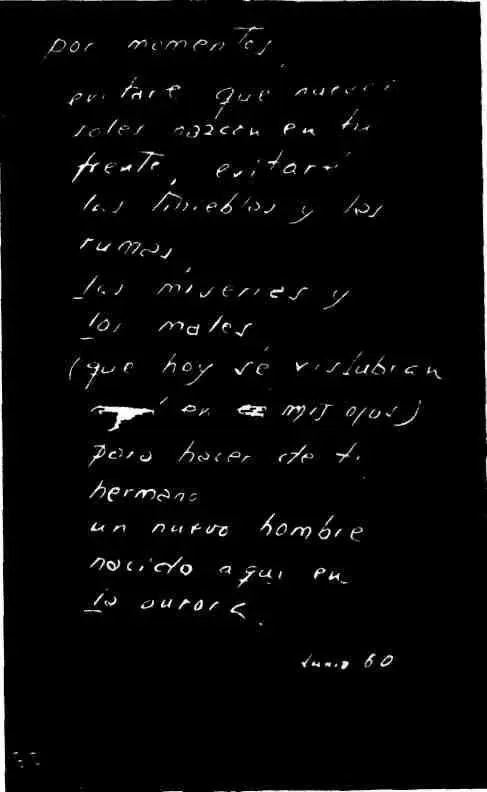 por momentos,
evitaré que nuevos
soles nazcan en tu
frente, evitaré
las tinieblas y las
rumas,
las miserias y
los males,
(que hoy se vislubran
en mis ojos)
para hacer de ti
hermano
un nuevo hombre
nacido aquí en
la aurora.
Junio 60